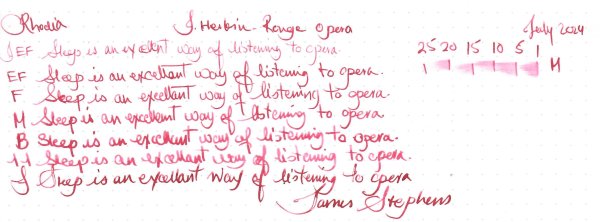 Rhodia J. Herbin - Rouge Opera July 2024
JEF Sleep is an excellent way of listening to opera.
25 20 15 10 5 1
EF Sleep is an excellant way of listening to opera. M
F Sleep is an excellant way of listening to opera.
M Sleep is an excellant way of listening to opera.
B Sleep is an excellent way of listening to opera.
1.1 Sleep is an excellant way of listening to opera.
J Sleep is an excellant way of listening to opera
James Stephens